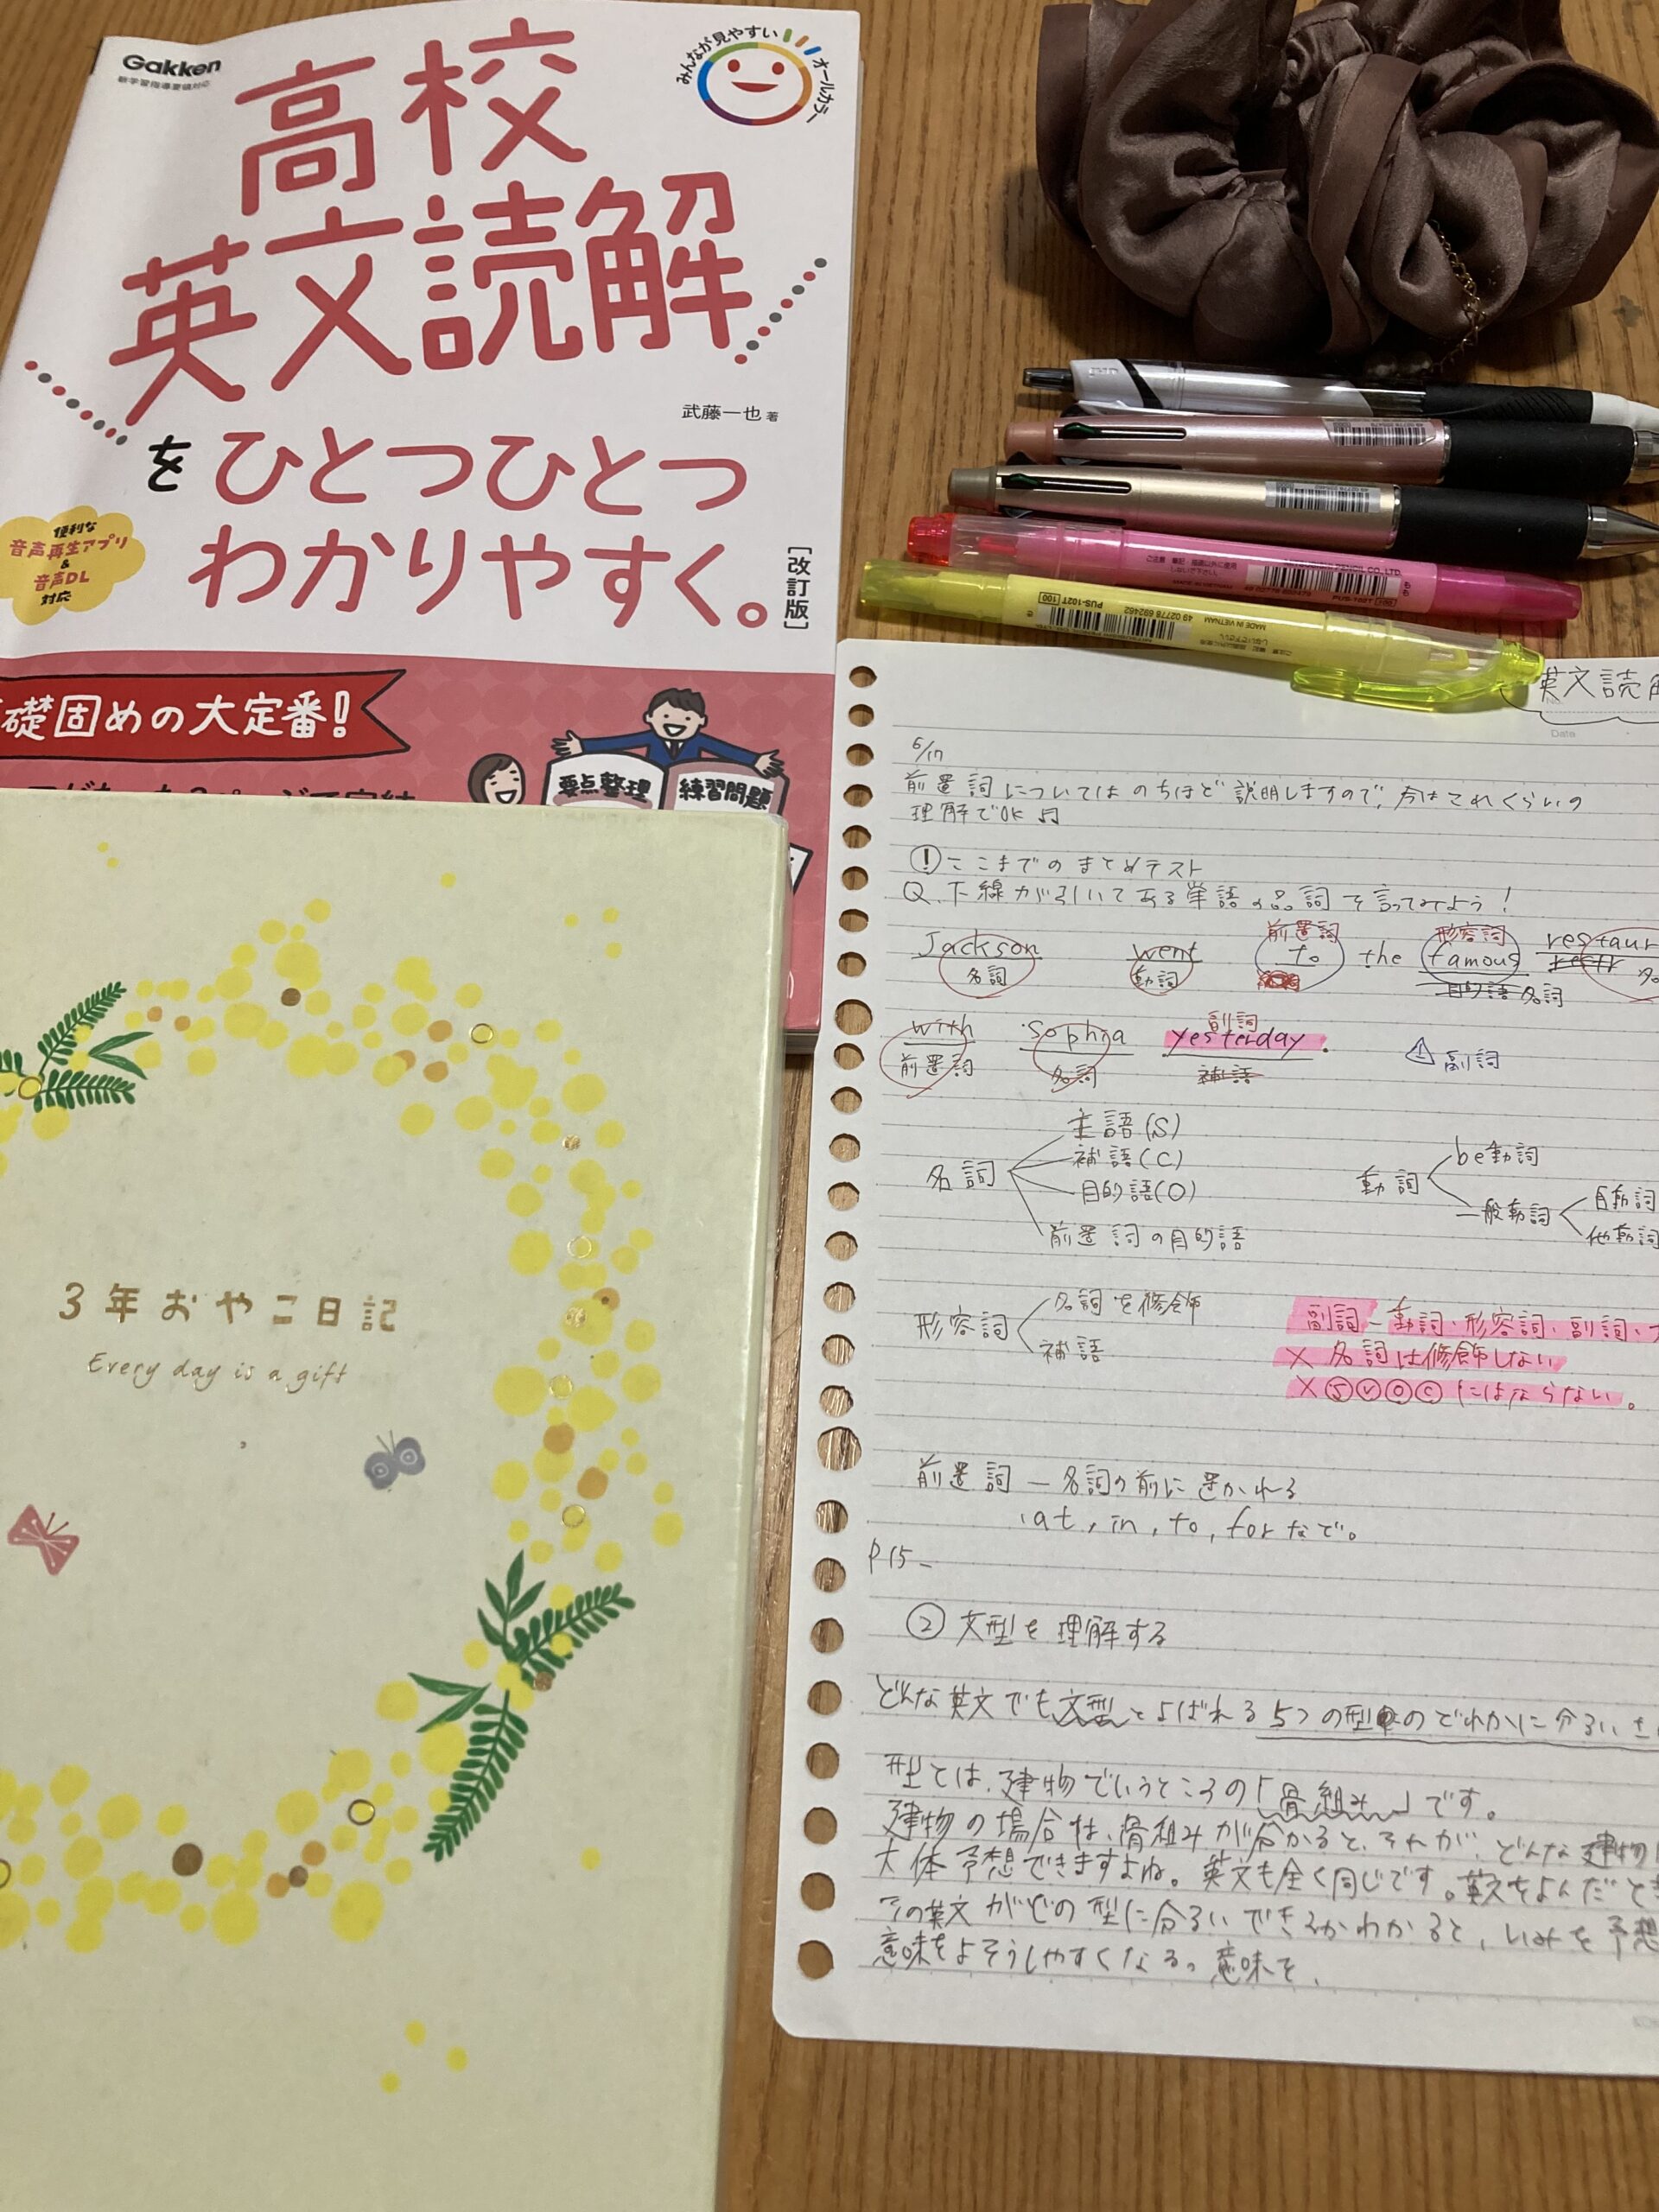 Gakken
新学習指導要領対応
みんなが見やすい オールカラー
高校
英文読解
武藤一也 著
をひとつひとつ
わかりやすく。
[改訂版]
便利な
音声再生アプリ
&
音声DL
対応
礎固めの大定番!
要点整理
練習問題
3年おやこ日記
Every day is a gift
PUS-102T
100
49 02778 692462
MADE IN VIETNAM
英文読
Date
6/17
前置詞についてはのちほど説明しますので、今はこれくらいの
理解でOK♫
! ここまでのまとめテスト
Q.下線が引いてある単語の品詞を言ってみよう!
前置詞 形容詞
Jackson went to the famous restaur
名詞 動詞 目的語 名詞
副詞
with Sophia yesterday.
前置詞 名詞 補語 副詞
名詞
主語(S)
補語(C)
目的語(O)
前置詞の目的語
動詞
be動詞
一般動詞
自動詞
他動詞
形容詞
名詞を修飾
補語
副詞-動詞・形容詞・副詞・
×名詞は修飾しない
×ⓈⓋⓄⒸにはならない。
前置詞 — 名詞の前に置かれる
・at, in, to, forなど。
P15-
②文型を理解する
どんな英文でも文型とよばれる5つの型のどれかに分るい
型とは、建物でいうところの「骨組み」です。
建物の場合は、骨組みが分かると、それが、どんな建物
大体予想できますよね。英文も全く同じです。英文をよんだと
その英文がどの型に分るいできるかわかると、いみを予想
意味をよそうしやすくなる。意味を、